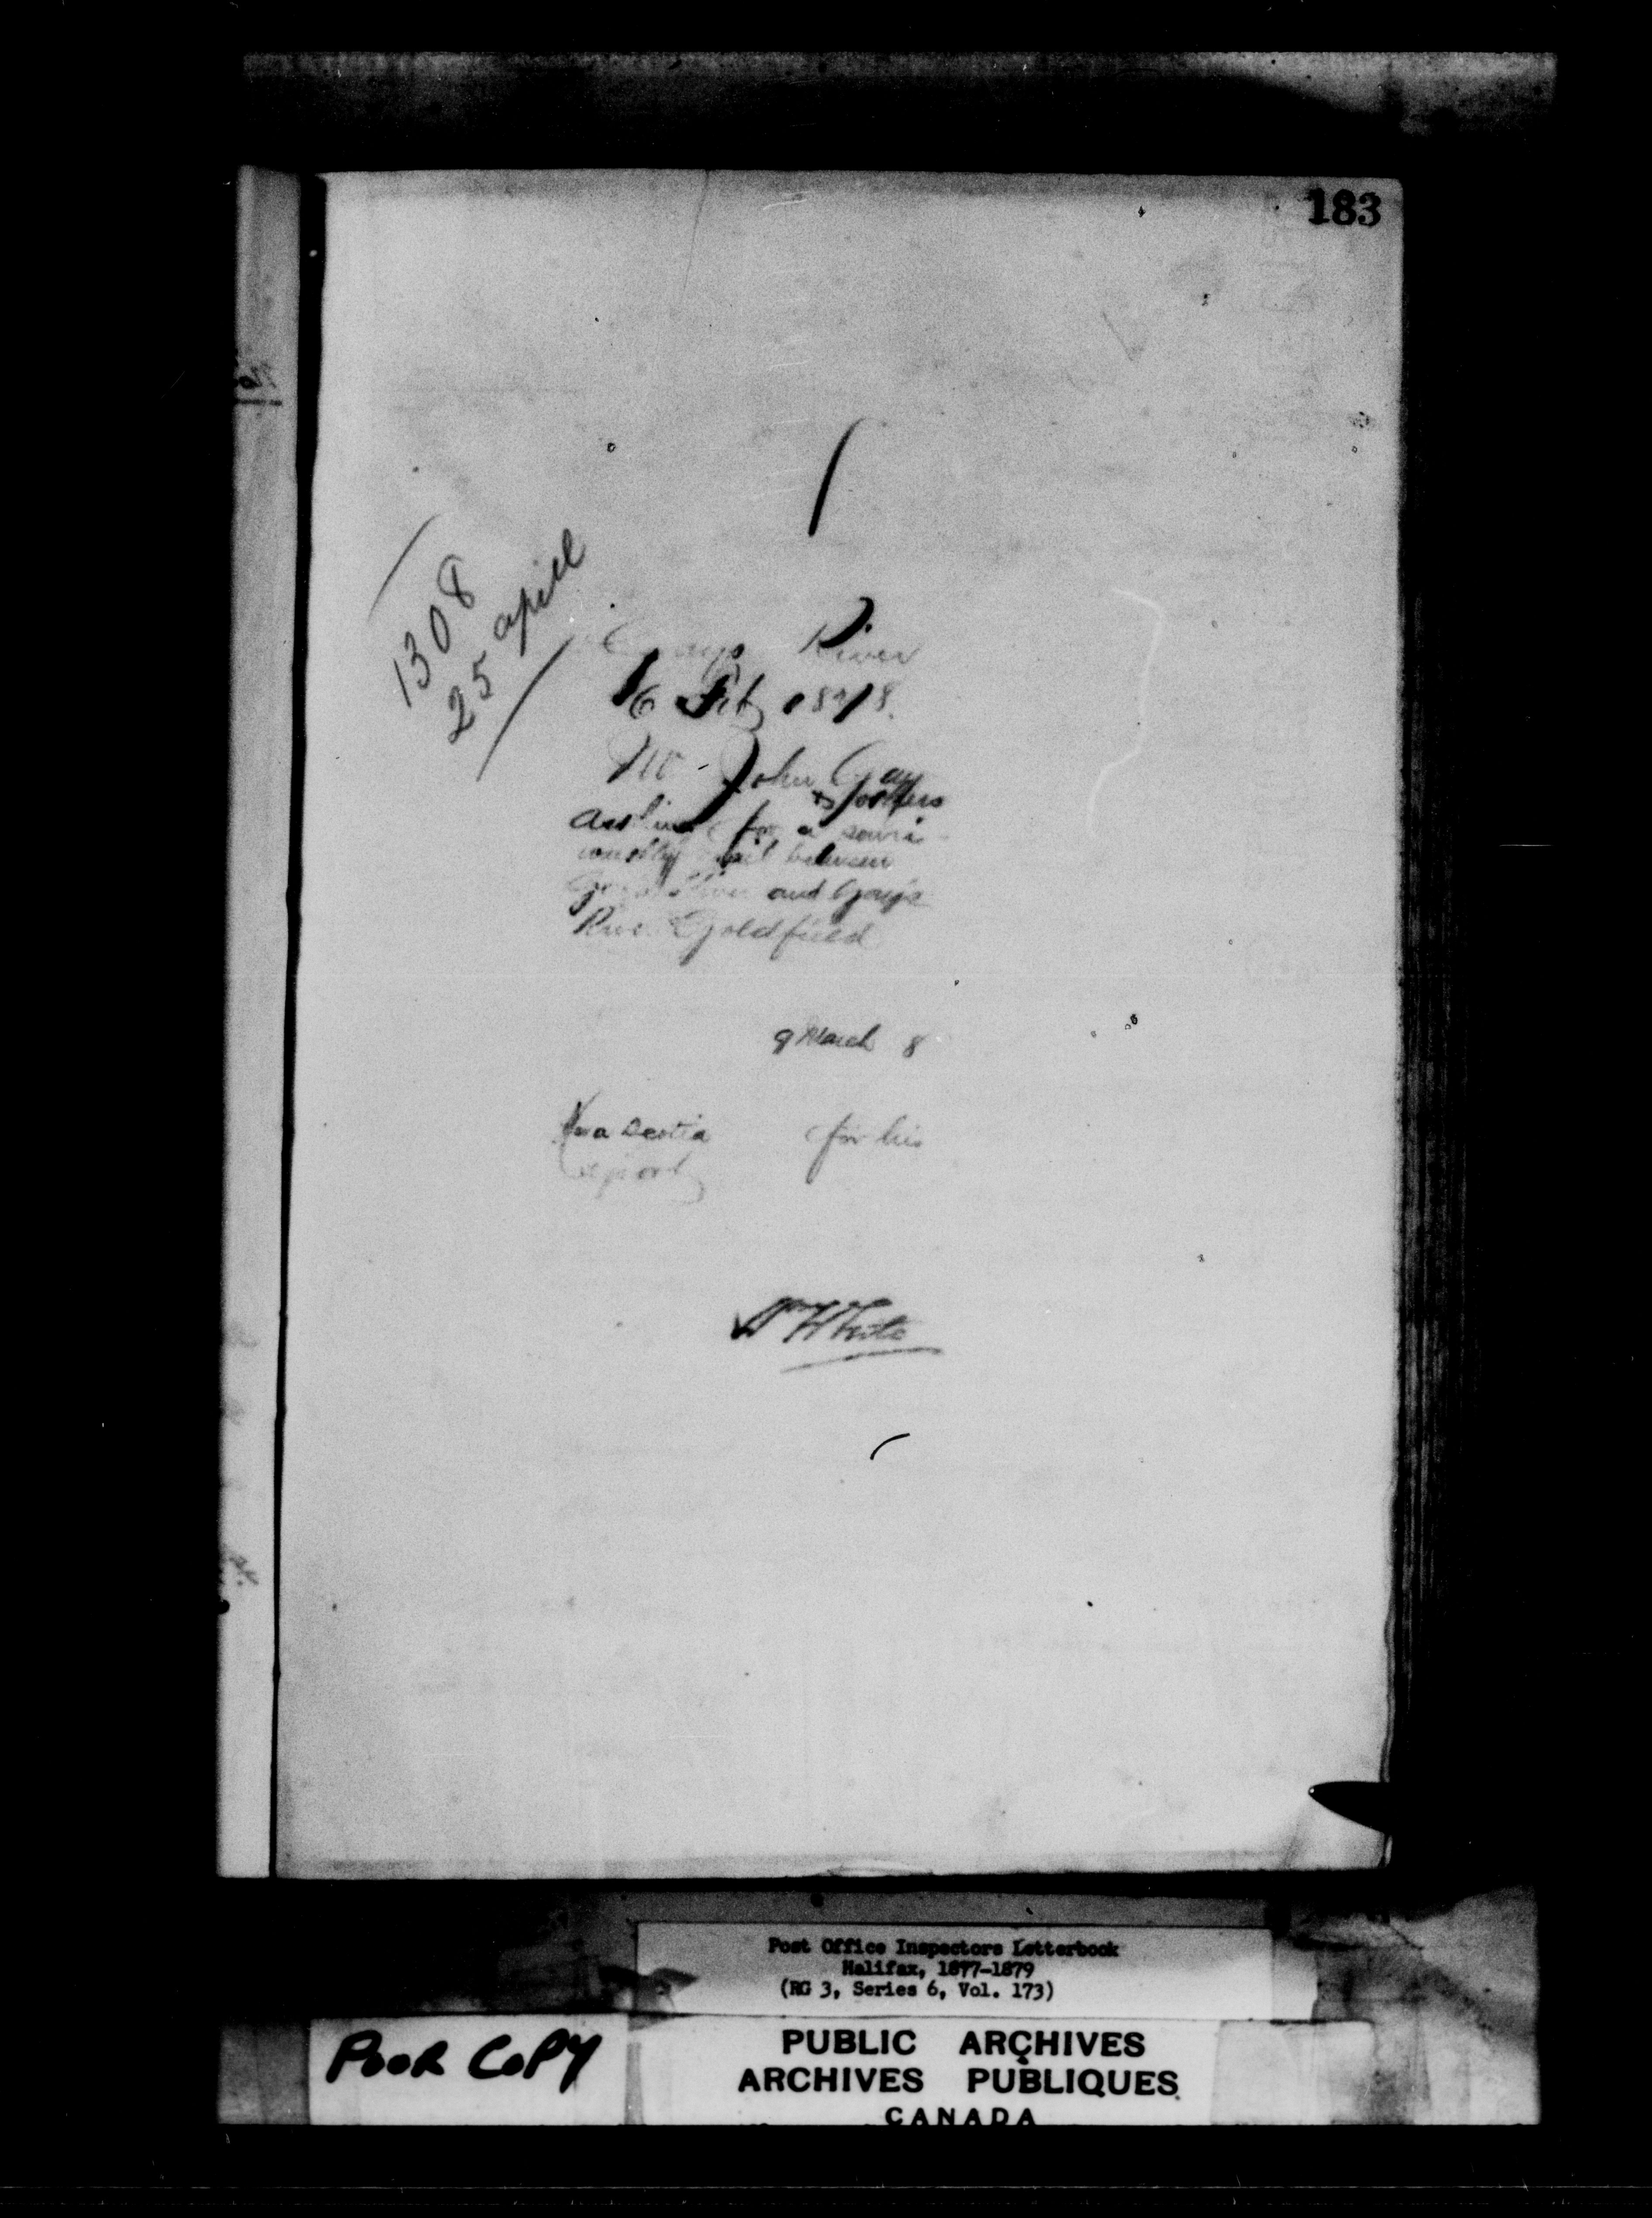 183
1308
25 april
Gays River
16 Feb 1878.
Mr John Gay
& others
for a semi
weekly mail between
Gays River and Gay's
River Goldfield
9 March 8
Nova Scotia for his
report
Wm White
Post Office Inspectors Letterbook
Halifax, 1877-1879
(RG 3, Series 6, Vol. 173)
POOR COPY
PUBLIC ARCHIVES
ARCHIVES PUBLIQUES
CANADA